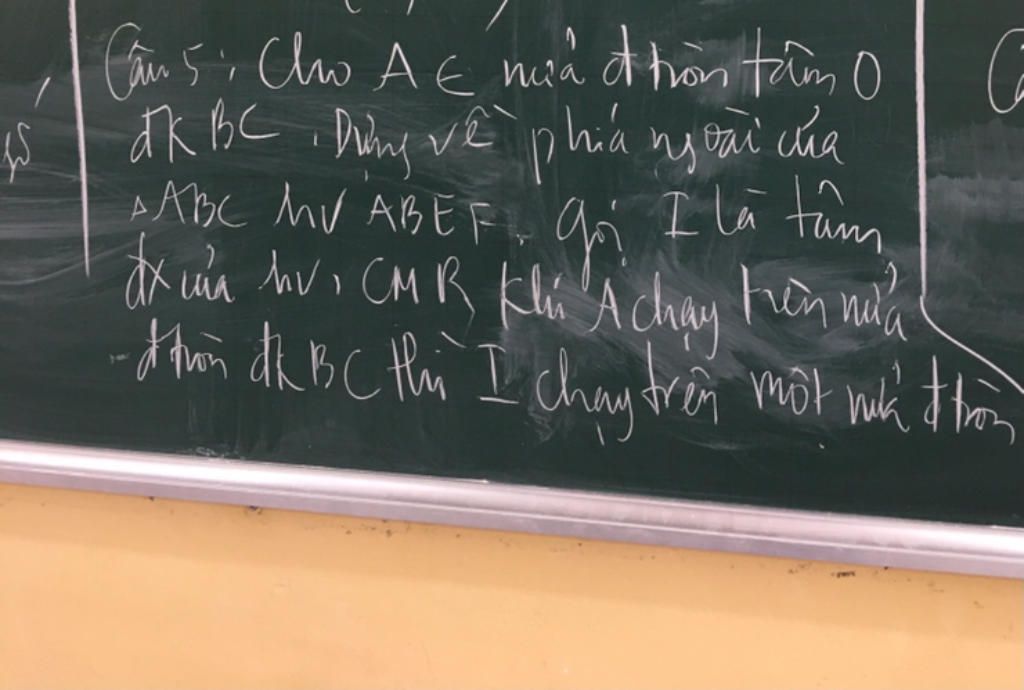 Câu 5: Cho A ∈ nửa đtròn tâm O
đk BC. Dựng về phía ngoài của
△ABC hv ABEF. Gọi I là tâm
đx của hv. CMR khi A chạy trên nửa
đtròn đk BC thì I chạy trên một nửa đtròn